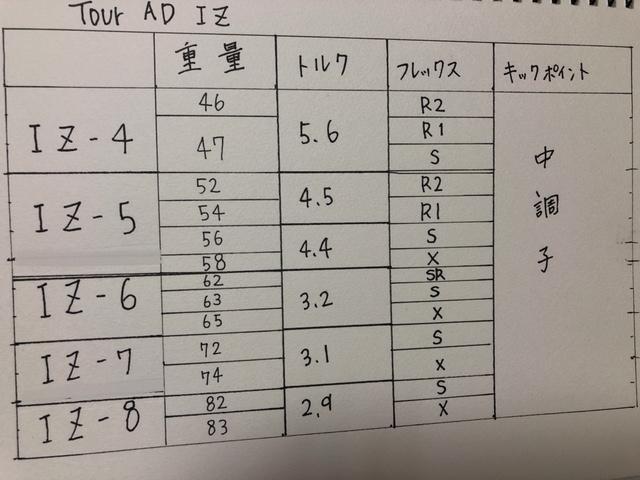 Tour AD IZ
重量 トルク フレックス キックポイント
IZ-4 46 5.6 R2 中調子
47 R1
S
IZ-5 52 4.5 R2
54 R1
56 4.4 S
58 X
IZ-6 62 3.2 SR
63 S
65 X
IZ-7 72 3.1 S
74 X
IZ-8 82 2.9 S
83 X